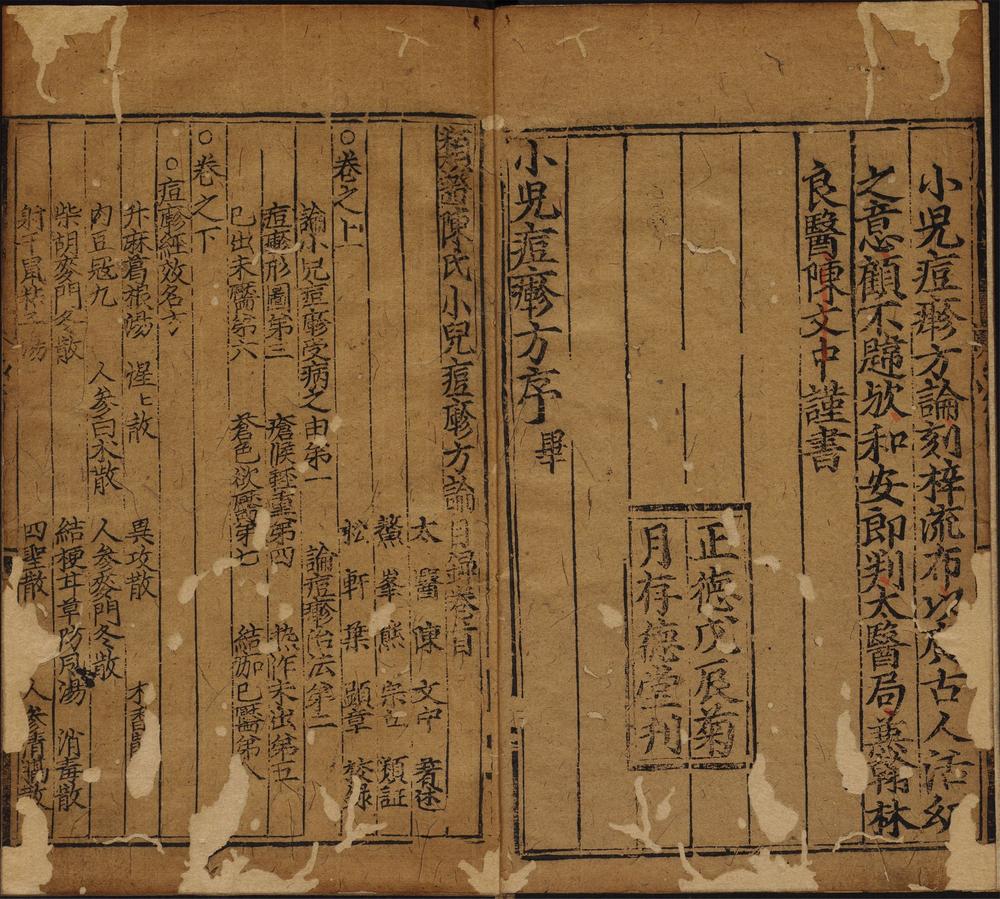 小兒痘疹方論刻梓流布以廣古人活幼
之意顧不韙歟和安郎判太醫局兼翰林
良醫陳文中謹書
正德戊辰菊
月存德堂刊
小兒痘疹方序畢
類證陳氏小兒痘疹方論目錄
太醫陳文中著述
鰲峯熊宗立類証
松軒葉顕章校錄
○卷之上
論小兒痘疹受病之由第一 論痘疹治法第二
痘疹形圖第三 瘡候輕重第四 热作未出第五
已出未靨第六 蒼色欲靨第七 結痂已靨第八
○卷之下
○痘疹經效名方
升麻葛根湯 惺〻散 異攻散 木香散
肉豆冦丸 人參白朮散 人參麥門冬散
柴胡麥門冬散 結梗甘草防風湯 消毒散
射干鼠粘子湯 四聖散 人參清膈散